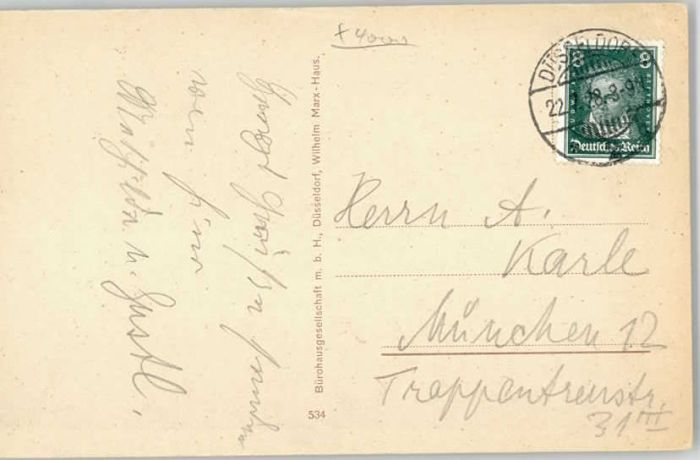 Herzl. Grüße senden
von hier
Mathilde u. Gustl.
Bürohausgesellschaft m. b. H., Düsseldorf, Wilhelm Marx-Haus.
534
DÜSSELDORF
22. 28. 8-9
8 8
Deutsches Reich
Herrn A.
Karle
München 12
Trappentreustr.
31 III